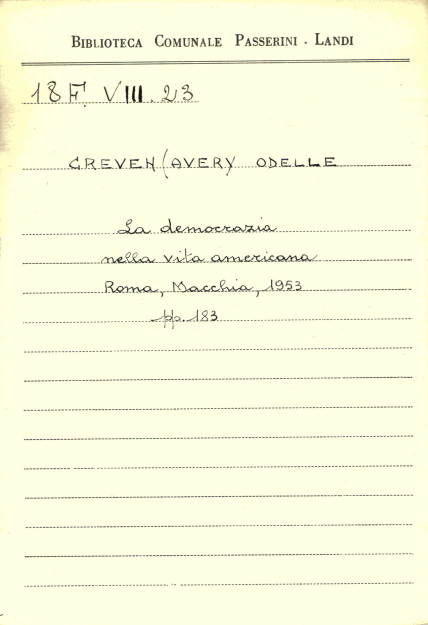 BIBLIOTECA COMUNALE PASSERINI - LANDI
18 F. VIII. 23
CREVEN (AVERY ODELLE
La democrazia
nella vita americana
Roma, Macchia, 1953
pp. 183